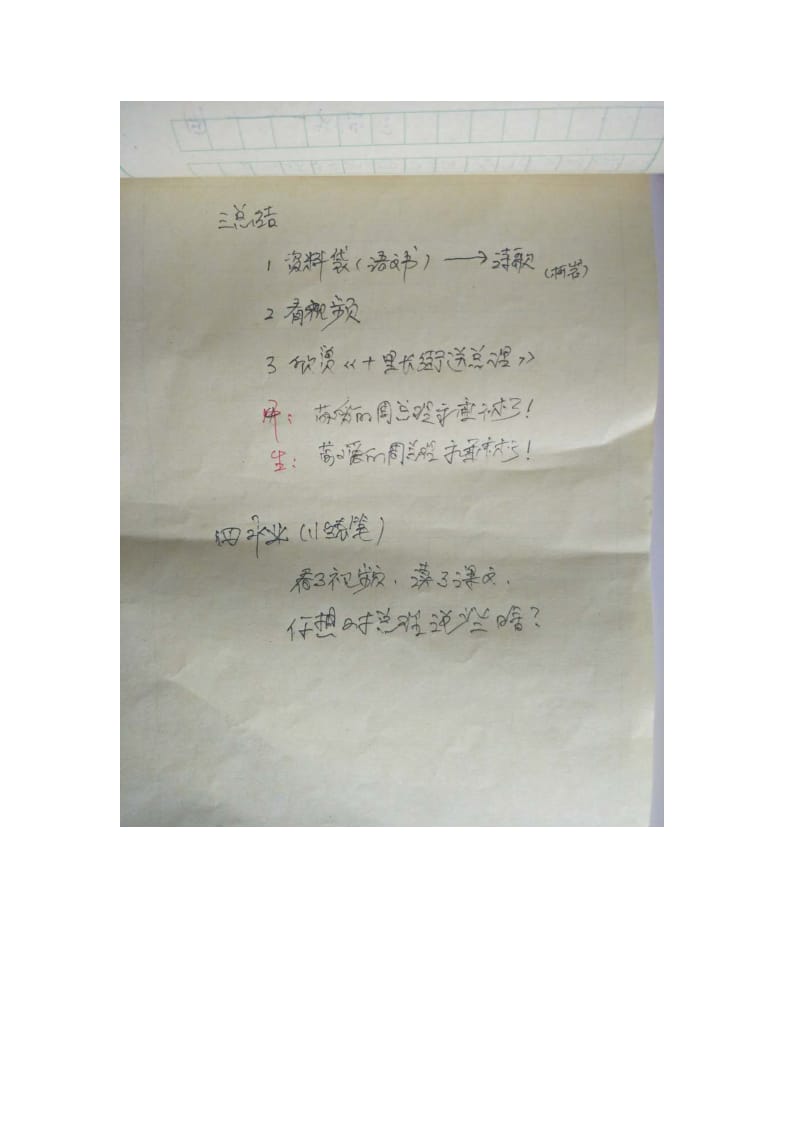 三总结
1 资料袋(语文书)→诗歌(柯岩)
2 看视频
3 欣赏《十里长街送总理》
师：敬爱的周总理永垂不朽了！
生：敬爱的周总理永垂不朽了！
四作业(小练笔)
看了视频、读了课文、
你想对总理说些啥？